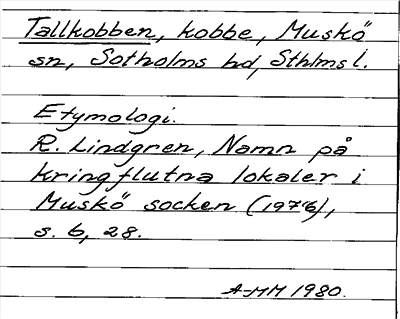 Tallkobben, kobbe, Muskö
sn, Sotholms hd, Sthlms l.
Etymologi.
R. Lindgren, Namn på
kringflutna lokaler i
Muskö socken (1976),
s. 6, 28.
A-MM 1980.